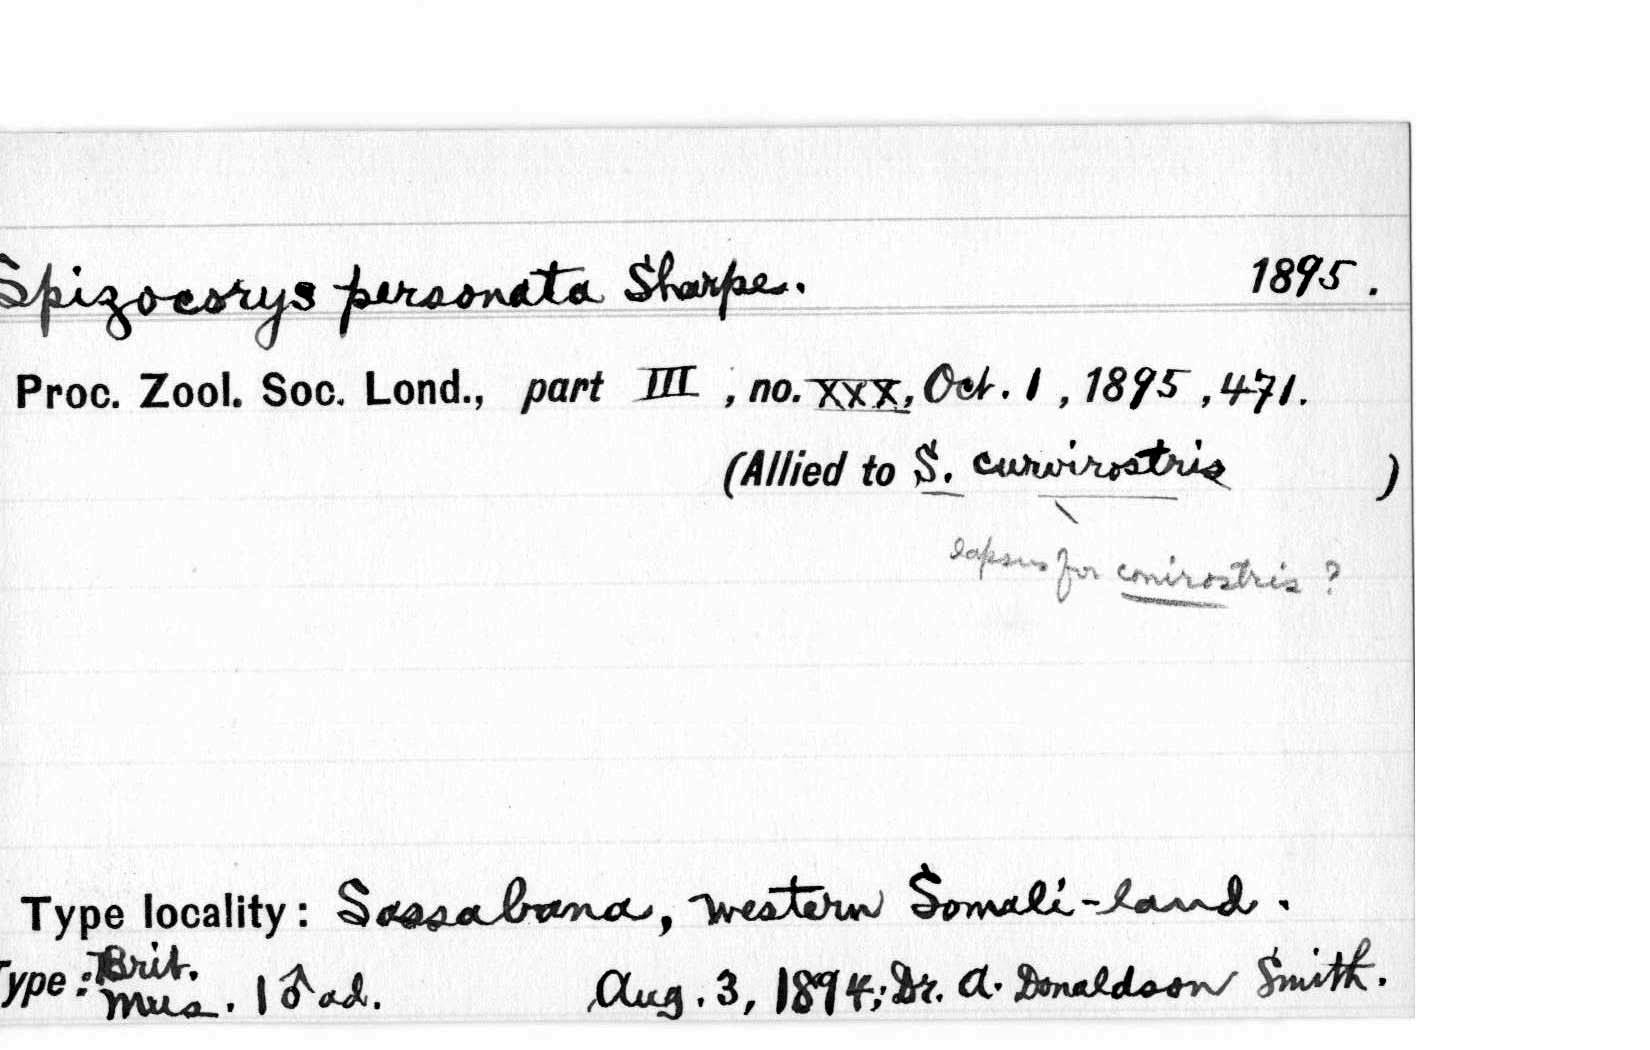 Spizocorys personata Sharpe. 1895.
Proc. Zool. Soc. Lond., part III, no. XXX, Oct. 1, 1895, 471.
(Allied to S. curvirostris )
lapsus for conirostris ?
Type locality: Sassabana, western Somali-land.
Type: Brit. Mus. 1 ♂ ad. Aug. 3, 1894; Dr. A. Donaldson Smith.